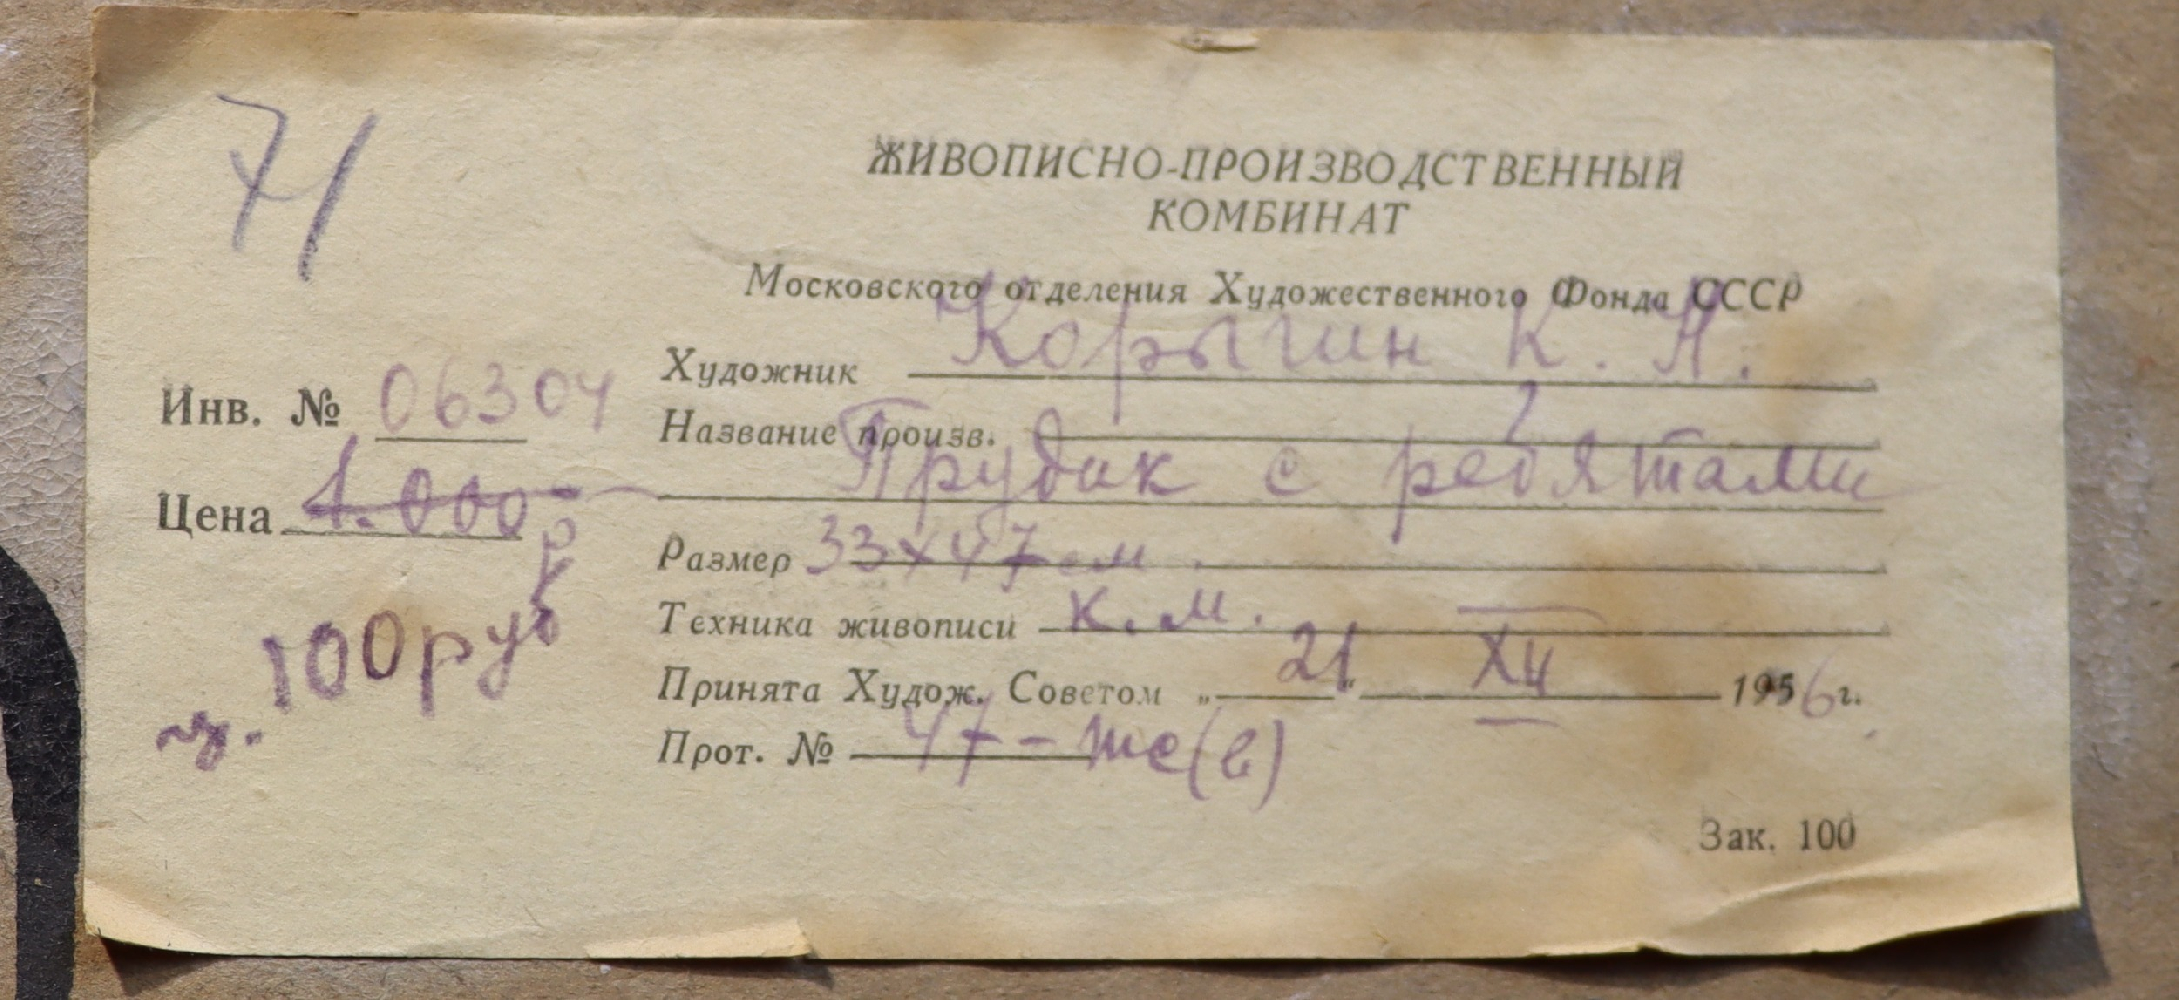 71
ЖИВОПИСНО-ПРОИЗВОДСТВЕННЫЙ
КОМБИНАТ
Московского отделения Художественного Фонда СССР
Художник Корыгин К. Н.
Инв. № 06304
Название произв.
Прудик с ребятами
Цена 1.000-
р
Размер 33х47 см
Техника живописи к. м.
100 руб
Принята Худож. Советом „21" XII 1956 г.
Прот. № 47-
Зак. 100